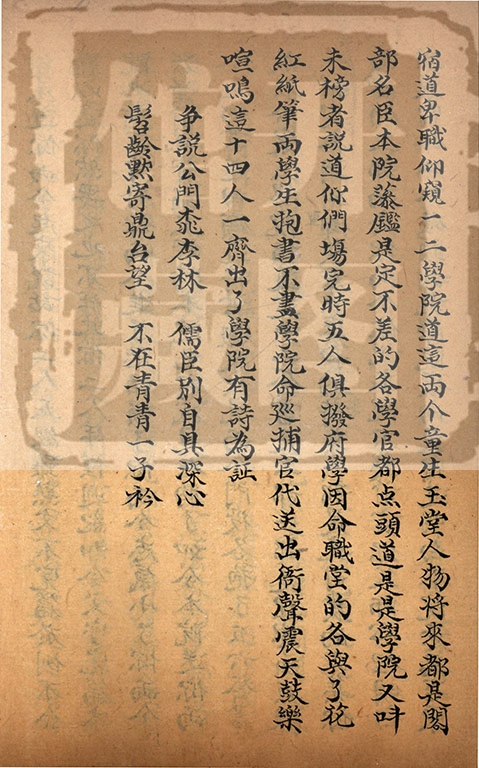 宿道卑職仰窺一二學院道這两个童生玉堂人物将來都是閣
部名臣本院藻鑑是定不差的各學官都点頭道是是學院又吽
未榜者説道你們塲完時五人俱撥府學因命職堂的各與了花
紅紙筆両學生抱書不盡學院命巡捕官代送出衙聲震天鼓樂
喧鳴這十四人一齊出了學院有詩為証
争説公門桃李林 儒臣別自具深心
髫齡默寄鼎台望 不在青青一子衿